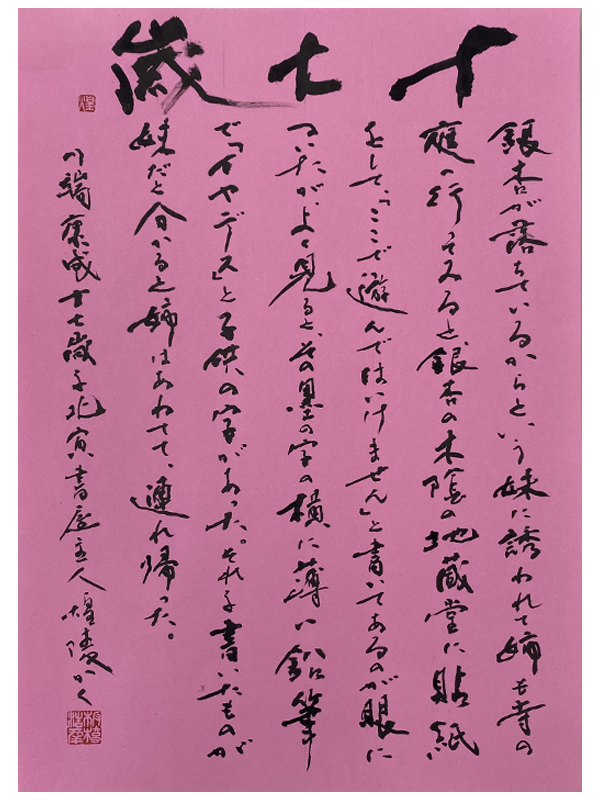 十七歳
銀杏が落ちているからと、いう妹に誘われて姉も寺の
庭へ行ってみると、銀杏の木陰の地蔵堂に貼紙
をして、「ここで遊んではいけません」と書いてあるのが眼に
ついたが、よく見ると、その墨の字の横に薄い鉛筆
で「イヤデス」と子供の字があった。それを書いたものが
妹だと分かると姉はあわてて、連れ帰った。
川端康成十七歳 書屋主人煌陵かく